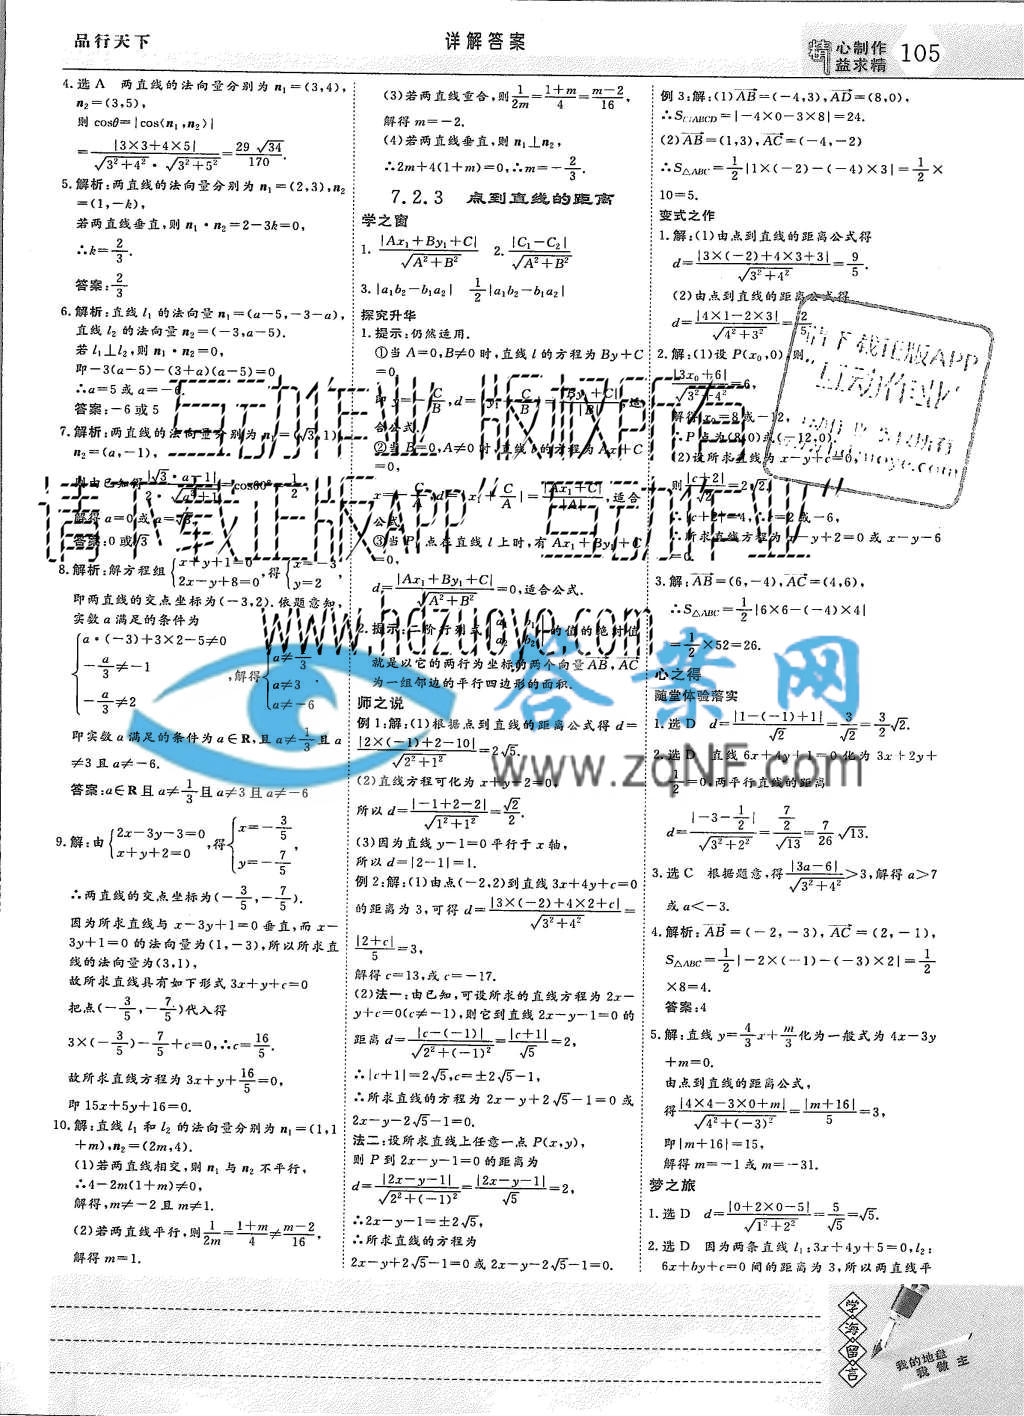 品行天下
详解答案
精心制作
益求精
105
4.选A 两直线的法向量分别为n₁=(3,4),
n₂=(3,5),
则cosθ=|cos⟨n₁,n₂⟩|
=|3×3+4×5|/(√(3²+4²)·√(3²+5²))=29√34/170.
5.解析:两直线的法向量分别为n₁=(2,3),n₂
=(1,-k),
若两直线垂直,则n₁·n₂=2-3k=0,
∴k=2/3.
答案:2/3
6.解析:直线l₁的法向量n₁=(a-5,-3-a),
直线l₂的法向量n₂=(-3,a-5).
若l₁⊥l₂,则n₁·n₂=0,
即-3(a-5)-(3+a)(a-5)=0
∴a=5或a=-6.
答案:-6或5
7.解析:两直线的法向量分别为n₁=(√3,1),
n₂=(a,-1),
则由已知得|√3·a-1|/(2·√(a²+1))=cos60°=1/2,
解得a=0或a=√3.
答案:0或√3
8.解析:解方程组{x+y+1=0 2x-y+8=0,得{x=-3, y=2,
即两直线的交点坐标为(-3,2).依题意知,
实数a满足的条件为
{a·(-3)+3×2-5≠0
-a/3≠-1
-a/3≠2
,解得{a≠1/3
a≠3
a≠-6
即实数a满足的条件为a∈R,且a≠1/3且a
≠3且a≠-6.
答案:a∈R且a≠1/3且a≠3且a≠-6
9.解:由{2x-3y-3=0 x+y+2=0,得{x=-3/5, y=-7/5.
∴两直线的交点坐标为(-3/5,-7/5).
因为所求直线与x-3y+1=0垂直,而x-
3y+1=0的法向量为(1,-3),所以所求直
线的法向量为(3,1),
故所求直线具有如下形式3x+y+c=0
把点(-3/5,-7/5)代入得
3×(-3/5)-7/5+c=0,∴c=16/5.
故所求直线方程为3x+y+16/5=0,
即15x+5y+16=0.
10.解:直线l₁和l₂的法向量分别为n₁=(1,1
+m),n₂=(2m,4).
(1)若两直线相交,则n₁与n₂不平行,
∴4-2m(1+m)≠0,
解得,m≠-2且m≠1.
(2)若两直线平行,则1/2m=(1+m)/4≠(m-2)/16,
解得m=1.
(3)若两直线重合,则1/2m=(1+m)/4=(m-2)/16,
解得m=-2.
(4)若两直线垂直,则n₁⊥n₂,
∴2m+4(1+m)=0,∴m=-2/3.
7.2.3 点到直线的距离
学之窗
1.|Ax₁+By₁+C|/√(A²+B²) 2.|C₁-C₂|/√(A²+B²)
3.|a₁b₂-b₁a₂| 1/2|a₁b₂-b₁a₂|
探究升华
1.提示:仍然适用.
①当A=0,B≠0时,直线l的方程为By+C
=0,
即y=-C/B,d=|y₁+C/B|=|By₁+C|/|B|,适
合公式.
②当B=0,A≠0时,直线l的方程为Ax+C
=0,
x=-C/A,d=|x₁+C/A|=|Ax₁+C|/|A|,适合
公式.
③当P点在直线l上时,有Ax₁+By₁+C
=0,
d=|Ax₁+By₁+C|/√(A²+B²)=0,适合公式.
2.提示:二阶行列式|a₁ b₁ a₂ b₂|的值的绝对值
就是以它的两行为坐标的两个向量AB,AC
为一组邻边的平行四边形的面积.
师之说
例1:解:(1)根据点到直线的距离公式得d=
|2×(-1)+2-10|/√(2²+1²)=2√5.
(2)直线方程可化为x+y-2=0,
所以d=|-1+2-2|/√(1²+1²)=√2/2.
(3)因为直线y-1=0平行于x轴,
所以d=|2-1|=1.
例2:解:(1)由点(-2,2)到直线3x+4y+c=0
的距离为3,可得d=|3×(-2)+4×2+c|/√(3²+4²)=
|2+c|/5=3,
解得c=13,或c=-17.
(2)法一:由已知,可设所求的直线方程为2x-
y+c=0(c≠-1),则它到直线2x-y-1=0的
距离d=|c-(-1)|/√(2²+(-1)²)=|c+1|/√5=2,
∴|c+1|=2√5,c=±2√5-1,
∴所求直线的方程为2x-y+2√5-1=0或
2x-y-2√5-1=0.
法二:设所求直线上任意一点P(x,y),
则P到2x-y-1=0的距离为
d=|2x-y-1|/√(2²+(-1)²)=|2x-y-1|/√5=2,
∴2x-y-1=±2√5,
∴所求直线的方程为
2x-y+2√5-1=0或2x-y-2√5-1=0.
例3:解:(1)AB=(-4,3),AD=(8,0),
∴S▱ABCD=|-4×0-3×8|=24.
(2)AB=(1,3),AC=(-4,-2)
∴S△ABC=1/2|1×(-2)-(-4)×3|=1/2×
10=5.
变式之作
1.解:(1)由点到直线的距离公式得
d=|3×(-2)+4×3+3|/√(3²+4²)=9/5.
(2)由点到直线的距离公式得
d=|4×1-2×3|/√(4²+3²)=2/5.
2.解:(1)设P(x₀,0),则
|3x₀+6|/√(3²+4²)=6,
解得x₀=8或-12,
∴P点为(8,0)或(-12,0).
(2)设所求直线为x-y+c=0,
则|c+2|/√2=2√2,
∴|c+2|=4,∴c=2或-6,
∴所求直线方程为x-y+2=0或x-y-6
=0.
3.解:AB=(6,-4),AC=(4,6),
∴S△ABC=1/2|6×6-(-4)×4|
=1/2×52=26.
心之得
随堂体验落实
1.选D d=|1-(-1)+1|/√2=3/√2=3/2√2.
2.选D 直线6x+4y+1=0化为3x+2y+
1/2=0,两平行直线的距离
d=|-3-1/2|/√(3²+2²)=7/2/√13=7/26√13.
3.选C 根据题意,得|3a-6|/√(3²+4²)>3,解得a>7
或a<-3.
4.解析:AB=(-2,-3),AC=(2,-1),
S△ABC=1/2|-2×(-1)-(-3)×2|=1/2
×8=4.
答案:4
5.解:直线y=4/3x+m/3化为一般式为4x-3y
+m=0.
由点到直线的距离公式,
得|4×4-3×0+m|/√(4²+(-3)²)=|m+16|/5=3,
即|m+16|=15,
解得m=-1或m=-31.
梦之旅
1.选D d=|0+2×0-5|/√(1²+2²)=5/√5=√5.
2.选D 因为两条直线l₁:3x+4y+5=0,l₂:
6x+by+c=0间的距离为3,所以两直线平
"互动作业"版权所有
请下载正版APP"互动作业"
www.hdzuoye.com
请下载正版APP
"互动作业"
答案网
www.zqNF.com
学海留言
我的地盘
我做主